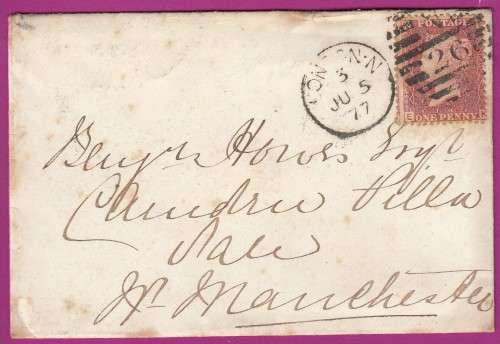 POSTAGE
26
LONDON·N
3
JU 5
77
E ONE PENNY
Benjn Howes Esqr
Camden Villa
Sale
Nr Manchester